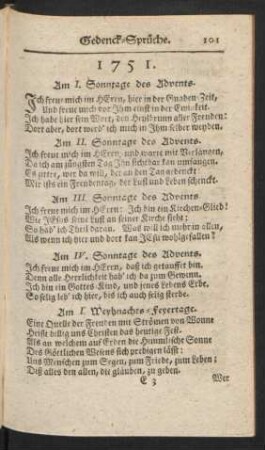 Gedenck-Sprüche. 101
1751.
Am I. Sonntage des Advents.
Ich freu mich im HErrn, hier in der Gnaden-Zeit,
Und freue mich vor Ihm einst in der Ewigkeit.
Ich habe hier sein Wort, den Heilbrunn aller Freuden:
Dort aber, dort werd' ich mich in Ihm selber weyden.
Am II. Sonntage des Advents.
Ich freue mich im HErrn, und warte mit Verlangen,
Da ich am jüngsten Tag Ihn sichtbar kan umfangen.
Es zitter, wer da will, der an den Tag gedenckt:
Mir ists ein Freudentag, der Lust und Leben schenckt.
Am III. Sonntage des Advents
Ich freue mich im HErrn: Ich bin ein Kirchen-Glied!
Wie JEsus seine Lust an seiner Kirche sieht;
So hab' ich Theil daran. Was will ich mehr in allen,
Als wenn ich hier und dort kan JEsu wohlgefallen?
Am IV. Sonntage des Advents.
Ich freue mich im HErrn, daß ich getauffet bin.
Denn alle Herrlichkeit hab' ich da zum Gewinn.
Ich bin ein Gottes-Kind, und jenes Lebens Erbe.
So selig leb' ich hier, bis ich auch selig sterbe.
Am I. Weyhnachts-Feyertage.
Eine Quelle der Freuden mit Strömen von Wonne
Heißt billig uns Christen das heutige Fest.
Als an welchem auf Erden die Himmlische Sonne
Des Göttlichen Wesens sich predigen läßt:
Uns Menschen zum Segen, zum Friede, zum Leben:
Diß alles den allen, die glauben, zu geben.
E 3 Wer